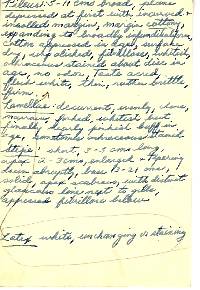 Pileus: 5-11 cms broad, plane
depressed at first with incurved +
margins, margin cottony
expanding to broadly infundibuliform,
often depressed in age, surface
dry, whitish
stained about disc in
age, no odor, Taste acrid,
flesh white, thin, rather brittle
firm.
Lamellae: decurrent, evenly, close,
narrow, forked, whitest but
finally clearly pinkish buff in
age, sometimes
Stipe: short, 3-5 cms long
apex 2-3 cms, enlarged + tapering
down abruptly, base 12-21 mm,
solid, apex with distinct
glaucous line next to gills,
appressed fibrillose below
Latex white, unchanging or staining